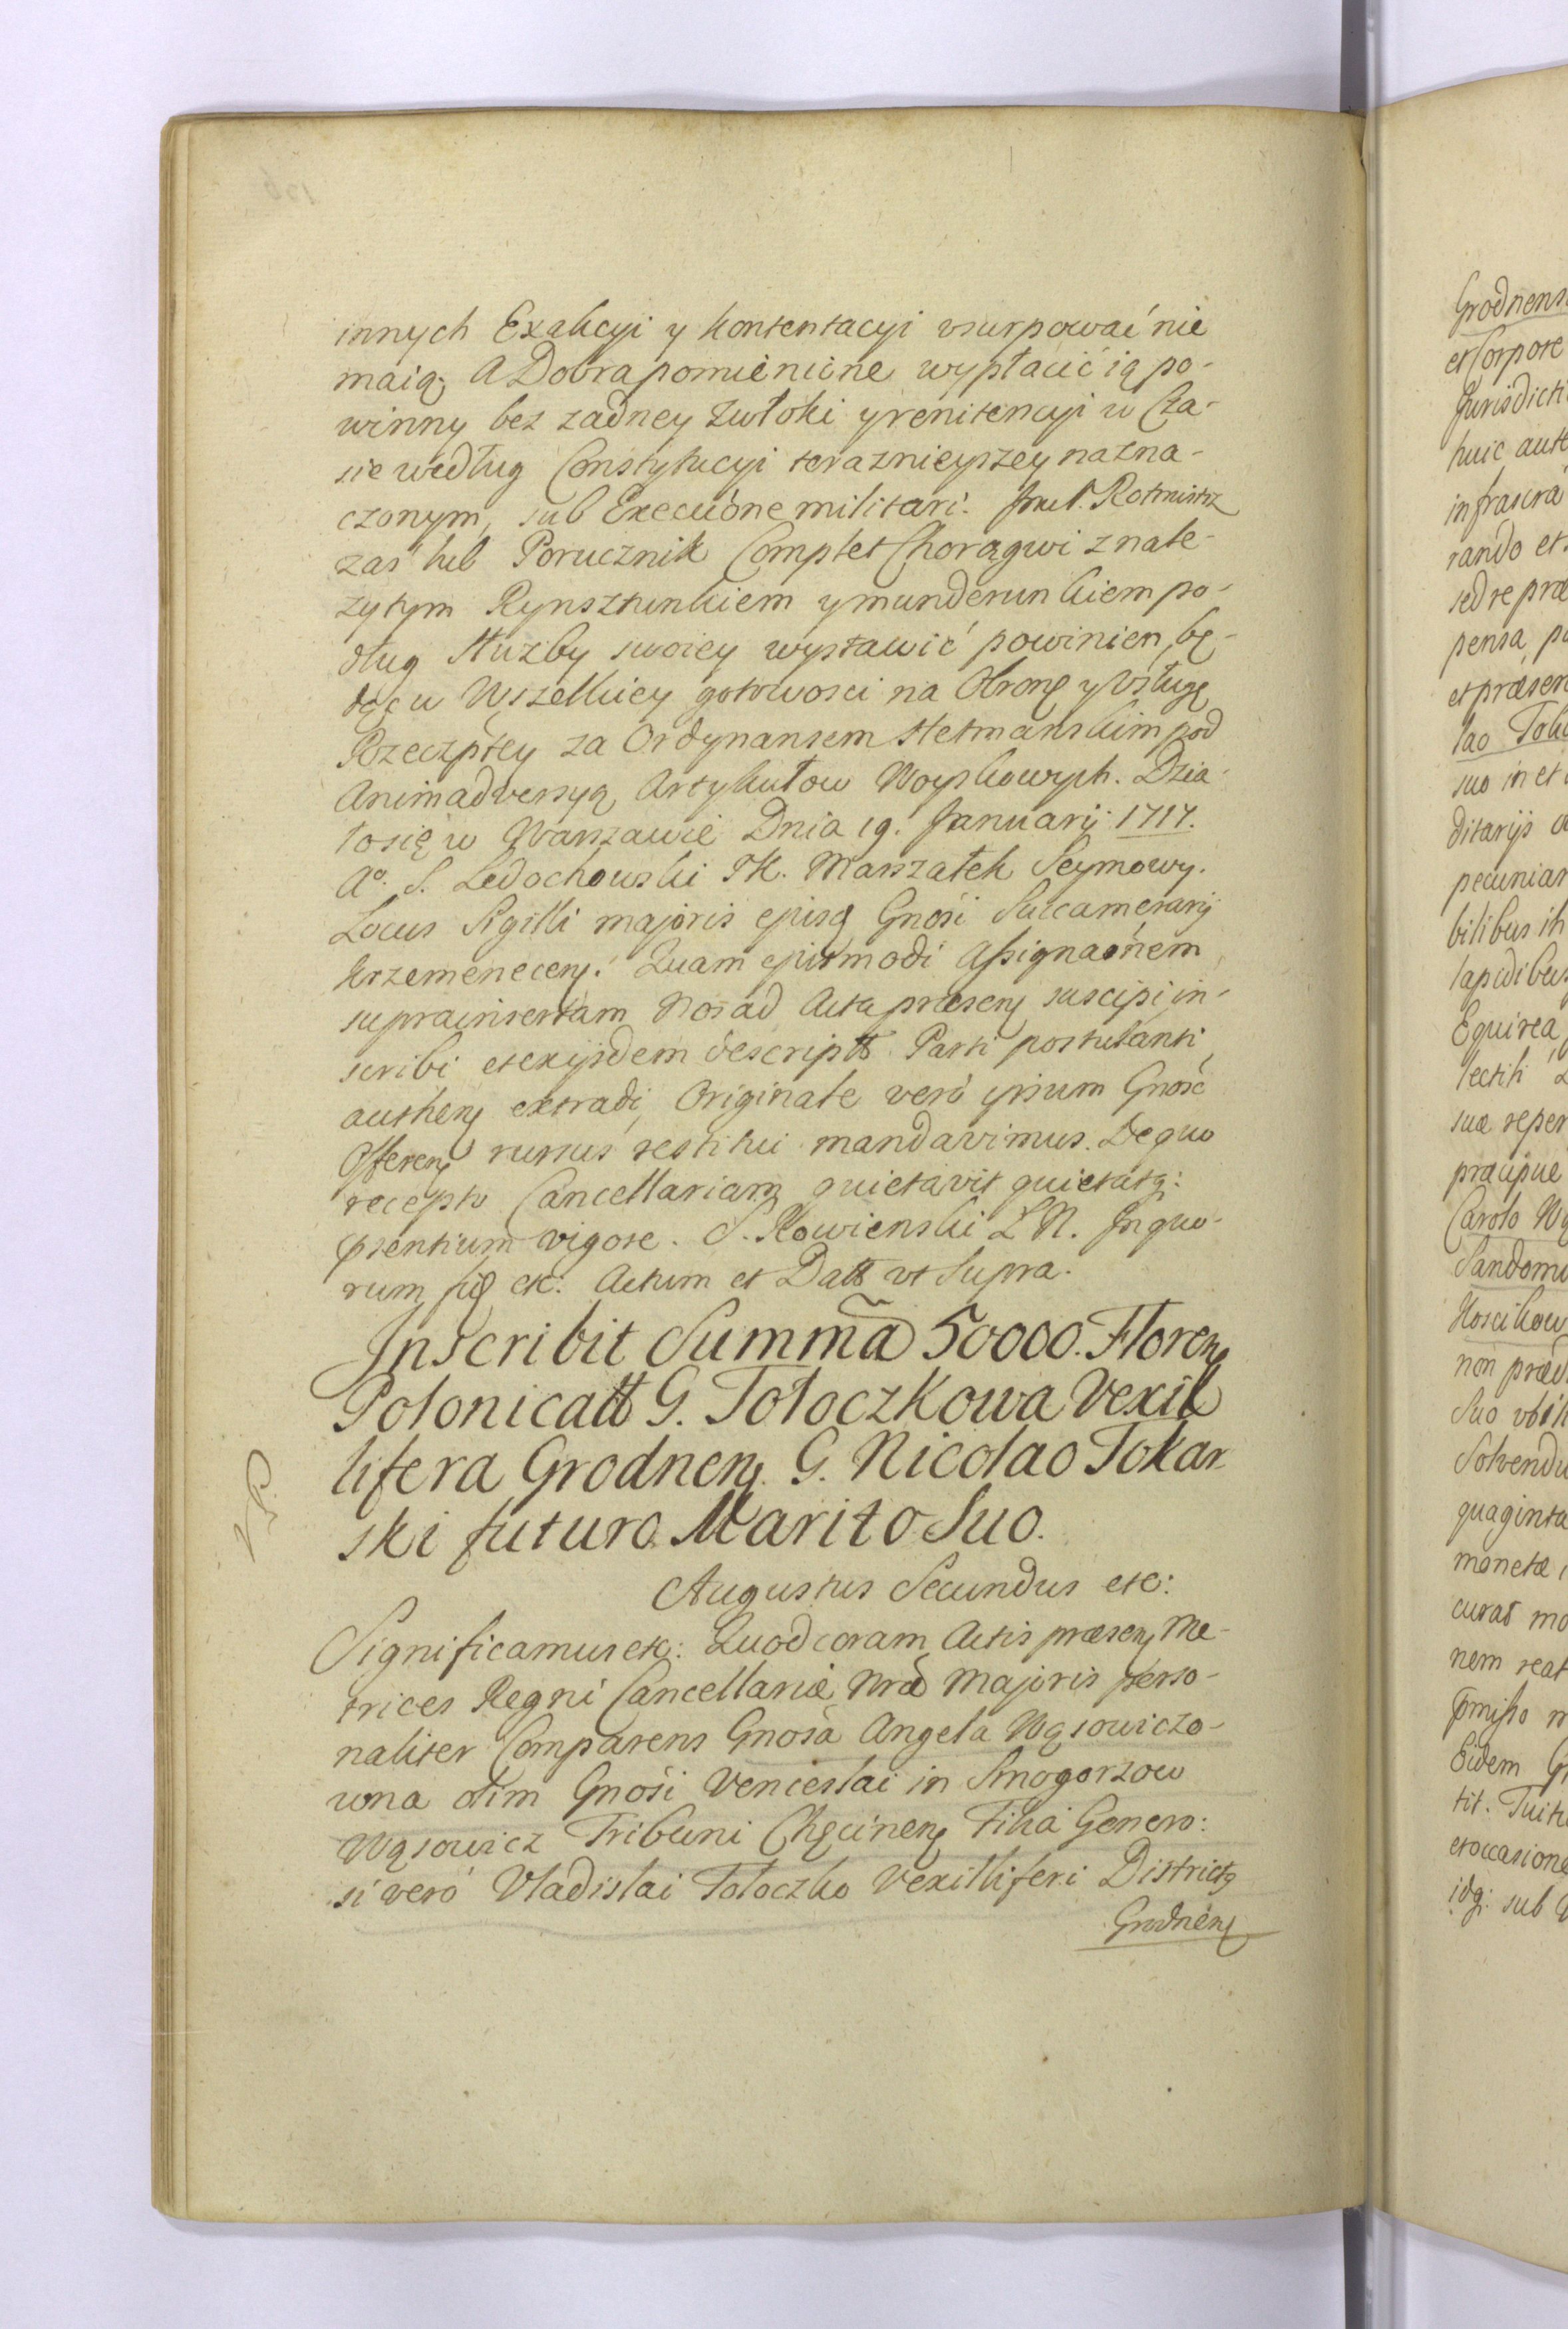 innych Exakcyi y kontentacyi vsurpować nie
maią; A Dobra pomienione wypłacić ią po-
winny bez zadney zwłoki y renitencyi w Cza-
sie według Constytucyi teraznieyszey nazna-
czonym, sub Execuóne militari. Rotmistrz
zaś lub Porucznik Complet Chorągwi z nale-
zytym Rynsztunkiem y munderunkiem po-
dług Słuzby swoiey wystawić powinien, bę-
dąc w Wszelkiey gotowosci na Obronę y Vsługę
Rzeczpltey za Ordynansem Hetmanskim pod
Animadversyą Artykułow Woyskowych. Dzia-
ło się w Warszawie Dnia 19. Januarij 1717.
Aº. S. Ledochowski PK. Marszałek Seymowy.
Locus Sigilli majoris ejusq Gnosi Succamerarij
Krzemenecen. Quam ejusmodi Assignaónem
suprainsertam Nos ad Acta praesen suscipi in-
scribi et ex ijsdem descriptt Parti postulanti
authen extradi, Originale veró ipsum Gnosc
Offeren rursus restitui mandavimus. De quo
recepto Cancellariam quietavit quietatq:
psentium vigore. S. Rowienski LN. In quo-
rum fid etc: Actum et Datt vt Supra.
Inscribit Summã 50000. Floren
Polonicatt G. Tołoczkowa Vexil
lifera Grodnen. G. Nicolao Tokar
ski futuro Marito Suo.
Augustus Secundus etc:
Significamus etc: Quod coram Actis praesen Me-
trices Regni Cancellariae Nrae Majoris perso-
naliter Comparens Gnosa Angela Wąsowiczo-
wna olim Gnosi Venceslai in Smogorzow
Wąsowicz Tribuni Chęcinen Filia Genero:
si veró Vladislai Tołoczko Vexilliferi Districtq
Grodnen
Grodnens
et Corpore
Jurisdicti
huic aute
infrascra
rando et
sed re prae
pensa, p
et praesen
lao Toka
suo in et
ditarijs
pecuniar
bilibus ih
lapidibus
Equirea
lectih
suae reper
praecipue
Carolo Wą
Sandomi
Koscikow
non praed
Suo vbih
Solvendu
quaginta
monetae
curat mo
nem reat
pmisso
Eidem G
tit. Tuit
et occasione
idq: sub